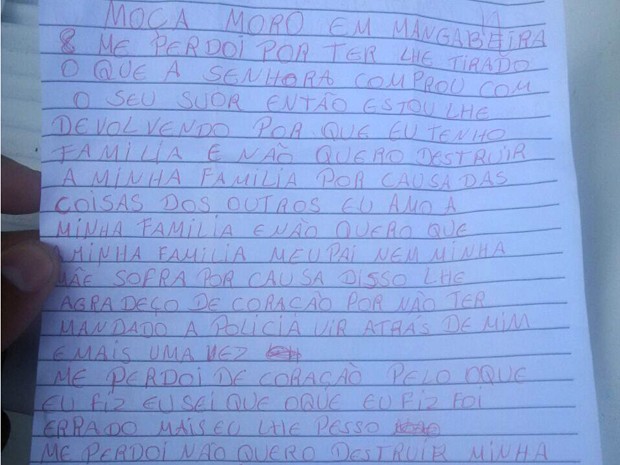 MOÇA MORO EM MANGABEIRA
8 ME PERDOI POR TER LHE TIRADO
O QUE A SENHORA COMPROU COM
O SEU SUOR ENTÃO ESTOU LHE
DEVOLVENDO POR QUE EU TENHO
FAMILIA E NÃO QUERO DESTRUIR
A MINHA FAMILIA POR CAUSA DAS
COISAS DOS OUTROS EU AMO A
MINHA FAMILIA E NÃO QUERO QUE
MINHA FAMILIA MEU PAI NEM MINHA
MÃE SOFRA POR CAUSA DISSO LHE
AGRADEÇO DE CORAÇÃO POR NÃO TER
MANDADO A POLICIA VIR ATRÁS DE MIM
E MAIS UMA VEZ
ME PERDOI DE CORAÇÃO PELO OQUE
EU FIZ EU SEI QUE OQUE EU FIZ FOI
ERRADO MAIS EU LHE PESSO
ME PERDOI NÃO QUERO DESTRUIR MINHA